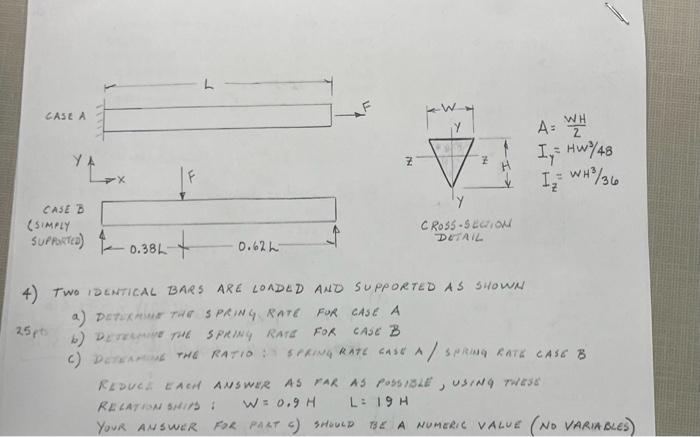 L
F
CASE A
W
Y
A = WH/2
Z Z
H
I_y = HW³/48
Y
X
F
I_z = WH³/36
Y
CASE B
(SIMPLY
SUPPORTED)
0.38L
0.62L
CROSS-SECTION
DETAIL
4) TWO IDENTICAL BARS ARE LOADED AND SUPPORTED AS SHOWN
a) DETERMINE THE SPRING RATE FOR CASE A
25pts
b) DETERMINE THE SPRING RATE FOR CASE B
c) DETERMINE THE RATIO : SPRING RATE CASE A / SPRING RATE CASE B
REDUCE EACH ANSWER AS FAR AS POSSIBLE, USING THESE
RELATIONSHIPS : W = 0.9 H L = 19 H
YOUR ANSWER FOR PART c) SHOULD BE A NUMERIC VALUE (NO VARIABLES)